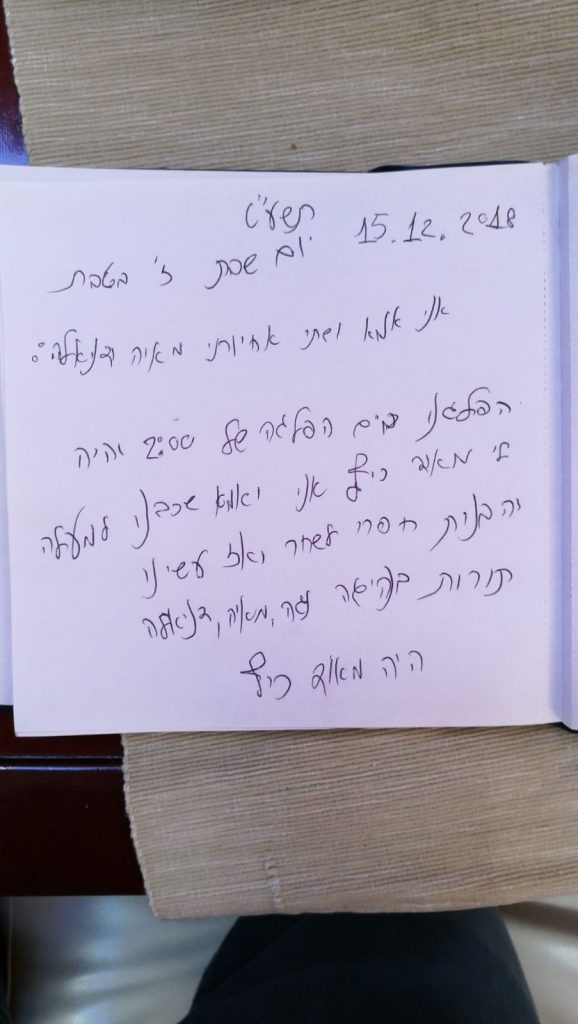 תשע"ט
15.12.2018 יום שבת ז' בטבת
אני אמא ושתי אחיותי מאיה ודניאלה:
הפלגנו בים הפלגה של 2:00 והיה
לי מאוד כיף אני ואמא שכבנו למעלה
והבנות חפרו לשחר ואז עשינו
תורות בנהיגה נגה, מאיה, דניאלה
היה מאוד כיף